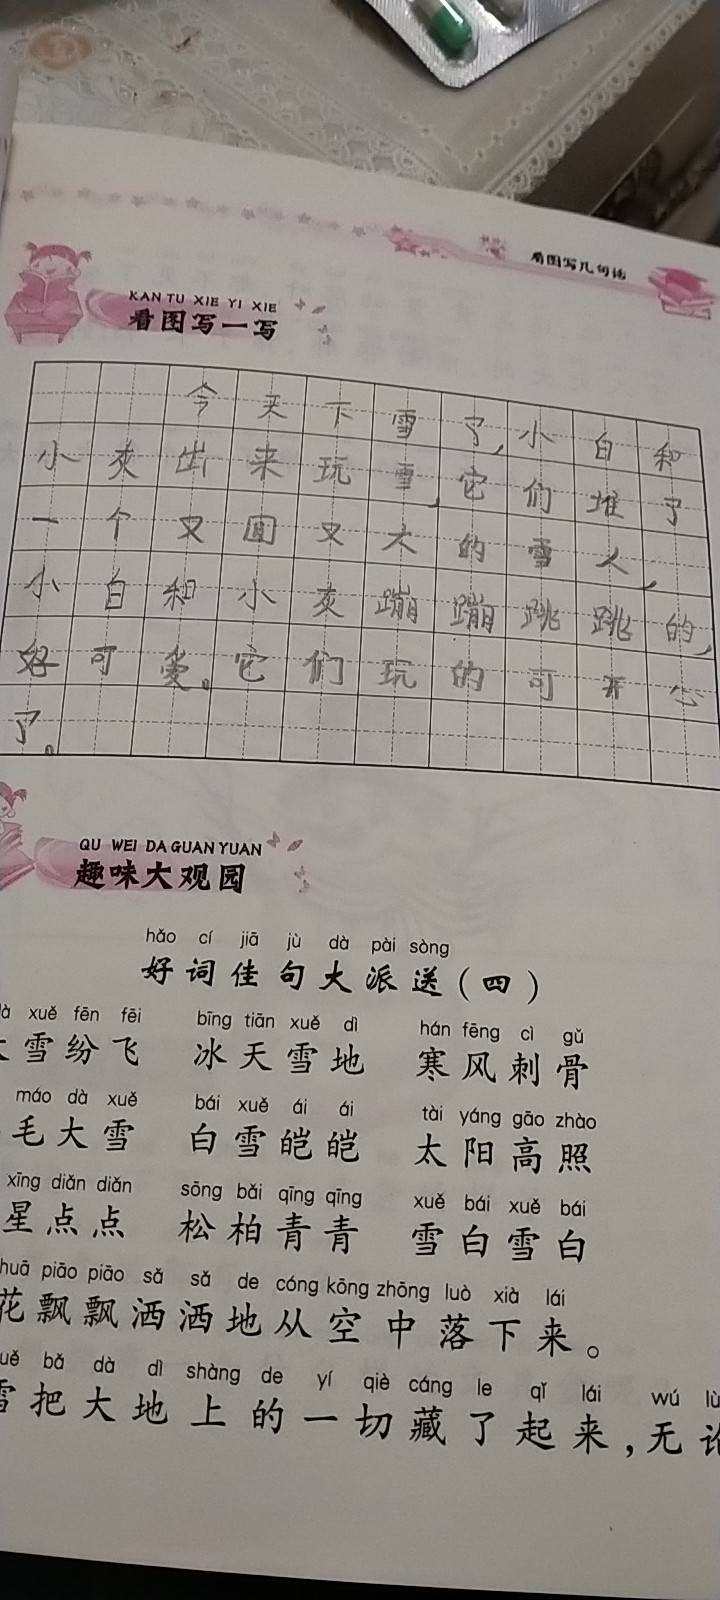 看图写几句话
KAN TU XIE YI XIE
看图写一写
今天下雪了,小白和
小灰出来玩雪,它们堆了
一个又圆又大的雪人,
小白和小灰蹦蹦跳跳的,
好可爱。它们玩的可开心
了。
QU WEI DA GUAN YUAN
趣味大观园
hǎo cí jiā jù dà pài sòng
好词佳句大派送(四)
xuě fēn fēi bīng tiān xuě dì hán fēng cì gǔ
雪纷飞 冰天雪地 寒风刺骨
máo dà xuě bái xuě ái ái tài yáng gāo zhào
毛大雪 白雪皑皑 太阳高照
xīng diǎn diǎn sōng bǎi qīng qīng xuě bái xuě bái
星点点 松柏青青 雪白雪白
huā piāo piāo sǎ sǎ de cóng kōng zhōng luò xià lái
花飘飘洒洒地从空中落下来。
bǎ dà dì shàng de yí qiè cáng le qǐ lái wú
雪把大地上的一切藏了起来,无